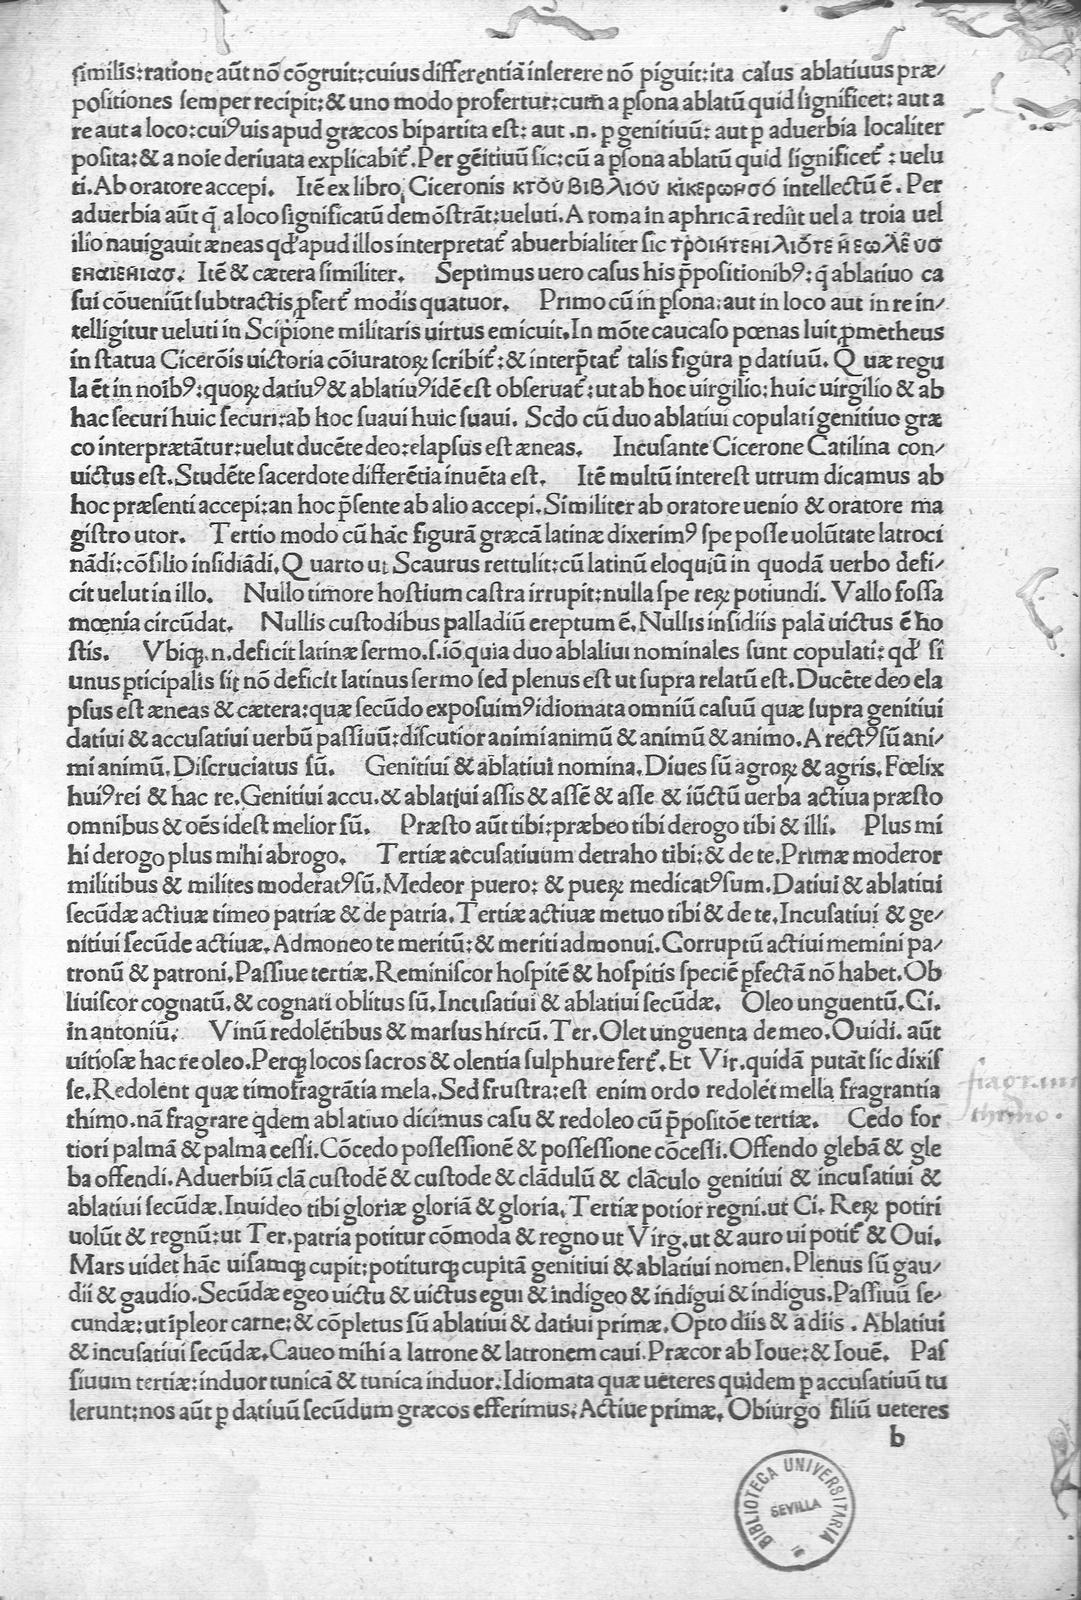 similis:ratione aūt nō cōgruit:cuius differentiā inserere nō piguit:ita casus ablatiuus præ/
positiones semper recipit:& uno modo profertur:cum̄ a p̄sona ablatū quid significet: aut a
re aut a loco:cuiꝰuis apud græcos bipartita est: aut .n. p genitiuū: aut p aduerbia localiter
posita:& a noīe deriuata explicabit̄. Per gēitiuū sic:cū a p̄sona ablatū quid significet̄ : uelu
ti.Ab oratore accepi. Itē ex libro Ciceronis κτȯυ βιβλιου κικερωнσό intellectū ē. Per
aduerbia aūt q̄ a loco significatū demōstrāt:ueluti.A roma in aphricā rediit uel a troia uel
ilio nauigauit æneas qd' apud illos interpretat̄ abuerbialiter sic
Itē & cætera similiter. Septimus uero casus his p̄positionibꝰ: q̄ ablatiuo ca
sui cōueniūt subtractis ꝓfert̄ modis quatuor. Primo cū in p̄sona:aut in loco aut in re in/
telligitur ueluti in Scipione militaris uirtus emicuit.In mōte caucaso pœnas luit ꝓmetheus
in statua Cicerōis uictoria cōiuratoꝝ scribit̄:& interp̄tat̄ talis figura p datiuū. Q uæ regu
la ēt in noībꝰ:quoꝝ datiuꝰ & ablatiuꝰ idē est obseruat̄:ut ab hoc uirgilio:huic uirgilio & ab
hac securi huic securi:ab hoc suaui huic suaui. Scdo cū duo ablatiui copulati genitiuo græ
co interprætātur:uelut ducēte deo:elapsus est æneas. Incusante Cicerone Catilina con/
uictus est.Studēte sacerdote differētia inuēta est. Itē multū interest utrum dicamus ab
hoc præsenti accepi:an hoc p̄sente ab alio accepi.Similiter ab oratore uenio & oratore ma
gistro utor. Tertio modo cū hāc figurā græcā latinæ dixerimꝰ spe posse uolūtate latroci
nādi:cōsilio insidiādi.Q uarto ut Scaurus rettulit:cū latinū eloquiū in quodā uerbo defi/
cit uelut in illo. Nullo timore hostium castra irrupit:nulla spe reꝝ potiundi. Vallo fossa
mœnia circūdat. Nullis custodibus palladiū ereptum ē.Nullis insidiis palā uictus ē ho
stis. Vbiqꝫ.n.deficit latinæ sermo.s.iō quia duo ablaliui nominales sunt copulati: qd' si
unus pticipalis sit nō deficit latinus sermo sed plenus est ut supra relatū est.Ducēte deo ela
psus est æneas & cætera:quæ secūdo exposuimꝰ idiomata omniū casuū quæ supra genitiui
datiui & accusatiui uerbū passiuū:discutior animi animū & animū & animo.A rectꝰ sū ani/
mi animū.Discruciatus sū. Genitiui & ablatiui nomina.Diues sū agroꝝ & agris.Fœlix
huiꝰ rei & hac re.Genitiui accu.& ablatiui assis & assē & asse & iūctū uerba actiua præsto
omnibus & oēs idest melior sū. Præsto aūt tibi:præbeo tibi derogo tibi & illi. Plus mi
hi derogo plus mihi abrogo. Tertiæ accusatiuum detraho tibi:& de te.Primæ moderor
militibus & milites moderatꝰ sū.Medeor puero: & pueꝝ medicatꝰ sum.Datiui & ablatiui
secūdæ actiuæ timeo patriæ & de patria.Tertiæ actiuæ metuo tibi & de te.Incusatiui & ge/
nitiui secūde actiuæ.Admoneo te meritū:& meriti admonui.Corruptū actiui memini pa/
tronū & patroni.Passiue tertiæ.Reminiscor hospitē & hospitis speciē pfectā nō habet.Ob
liuiscor cognatū.& cognati oblitus sū.Incusatiui & ablatiui secūdæ. Oleo unguentū.Ci.
in antoniū. Vinū redolētibus & marsus hircū.Ter.Olet unguenta de meo.Ouidi. aūt
uitiosæ hac re oleo.Perqꝫ locos sacros & olentia sulphure fert̄.Et Vir.quidā putāt sic dixis
se.Redolent quæ timofragrātia mela.Sed frustra:est enim ordo redolēt mella fragrantia
thimo.nā fragrare q̄dem ablatiuo dicimus casu & redoleo cū p̄positōe tertiæ. Cedo for
tiori palmā & palma cessi.Cōcedo possessionē & possessione cōcessi.Offendo glebā & gle
ba offendi.Aduerbiū clā custodē & custode & clādulū & clāculo genitiui & incusatiui &
ablatiui secūdæ.Inuideo tibi gloriæ gloriā & gloria.Tertiæ potior regni.ut Ci. Reꝝ potiri
uolūt & regnū:ut Ter.patria potitur cōmoda & regno ut Virg.ut & auro ui potit̄ & Oui.
Mars uidet hāc uisamqꝫ cupit:potiturqꝫ cupitā genitiui & ablatiui nomen.Plenus sū gau/
dii & gaudio.Secūdæ egeo uictu & uictus egui & indigeo & indigui & indigus.Passiuū se/
cundæ:ut īpleor carne:& cōpletus sū ablatiui & datiui primæ.Opto diis & a diis . Ablatiui
& incusatiui secūdæ.Caueo mihi a latrone & latronem caui.Præcor ab Ioue:& Iouē. Pas
siuum tertiæ:induor tunicā & tunica induor.Idiomata quæ ueteres quidem p accusatiuū tu
lerunt:nos aūt p datiuū secūdum græcos efferimus.Actiue primæ. Obiurgo filiū ueteres
b
fragran
thimo.
BIBLIOTECA UNIVERSITARIA
SEVILLA